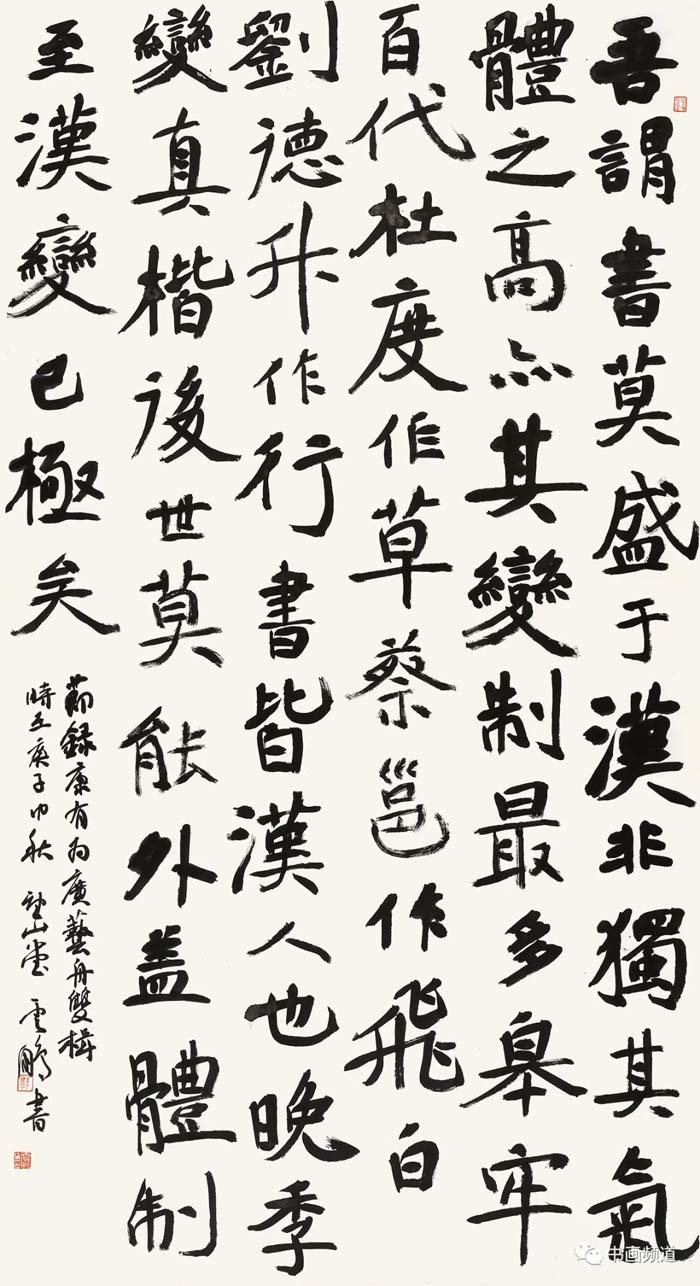 吾謂書莫盛于漢非獨其氣
體之高亦其變制最多皋牢
百代杜度作草蔡邕作飛白
劉德升作行書皆漢人也晚季
變真楷後世莫能外盖體制
至漢變已極矣
節録康有为廣藝舟雙楫
時在庚子中秋 山堂 雲鵬書
书画频道